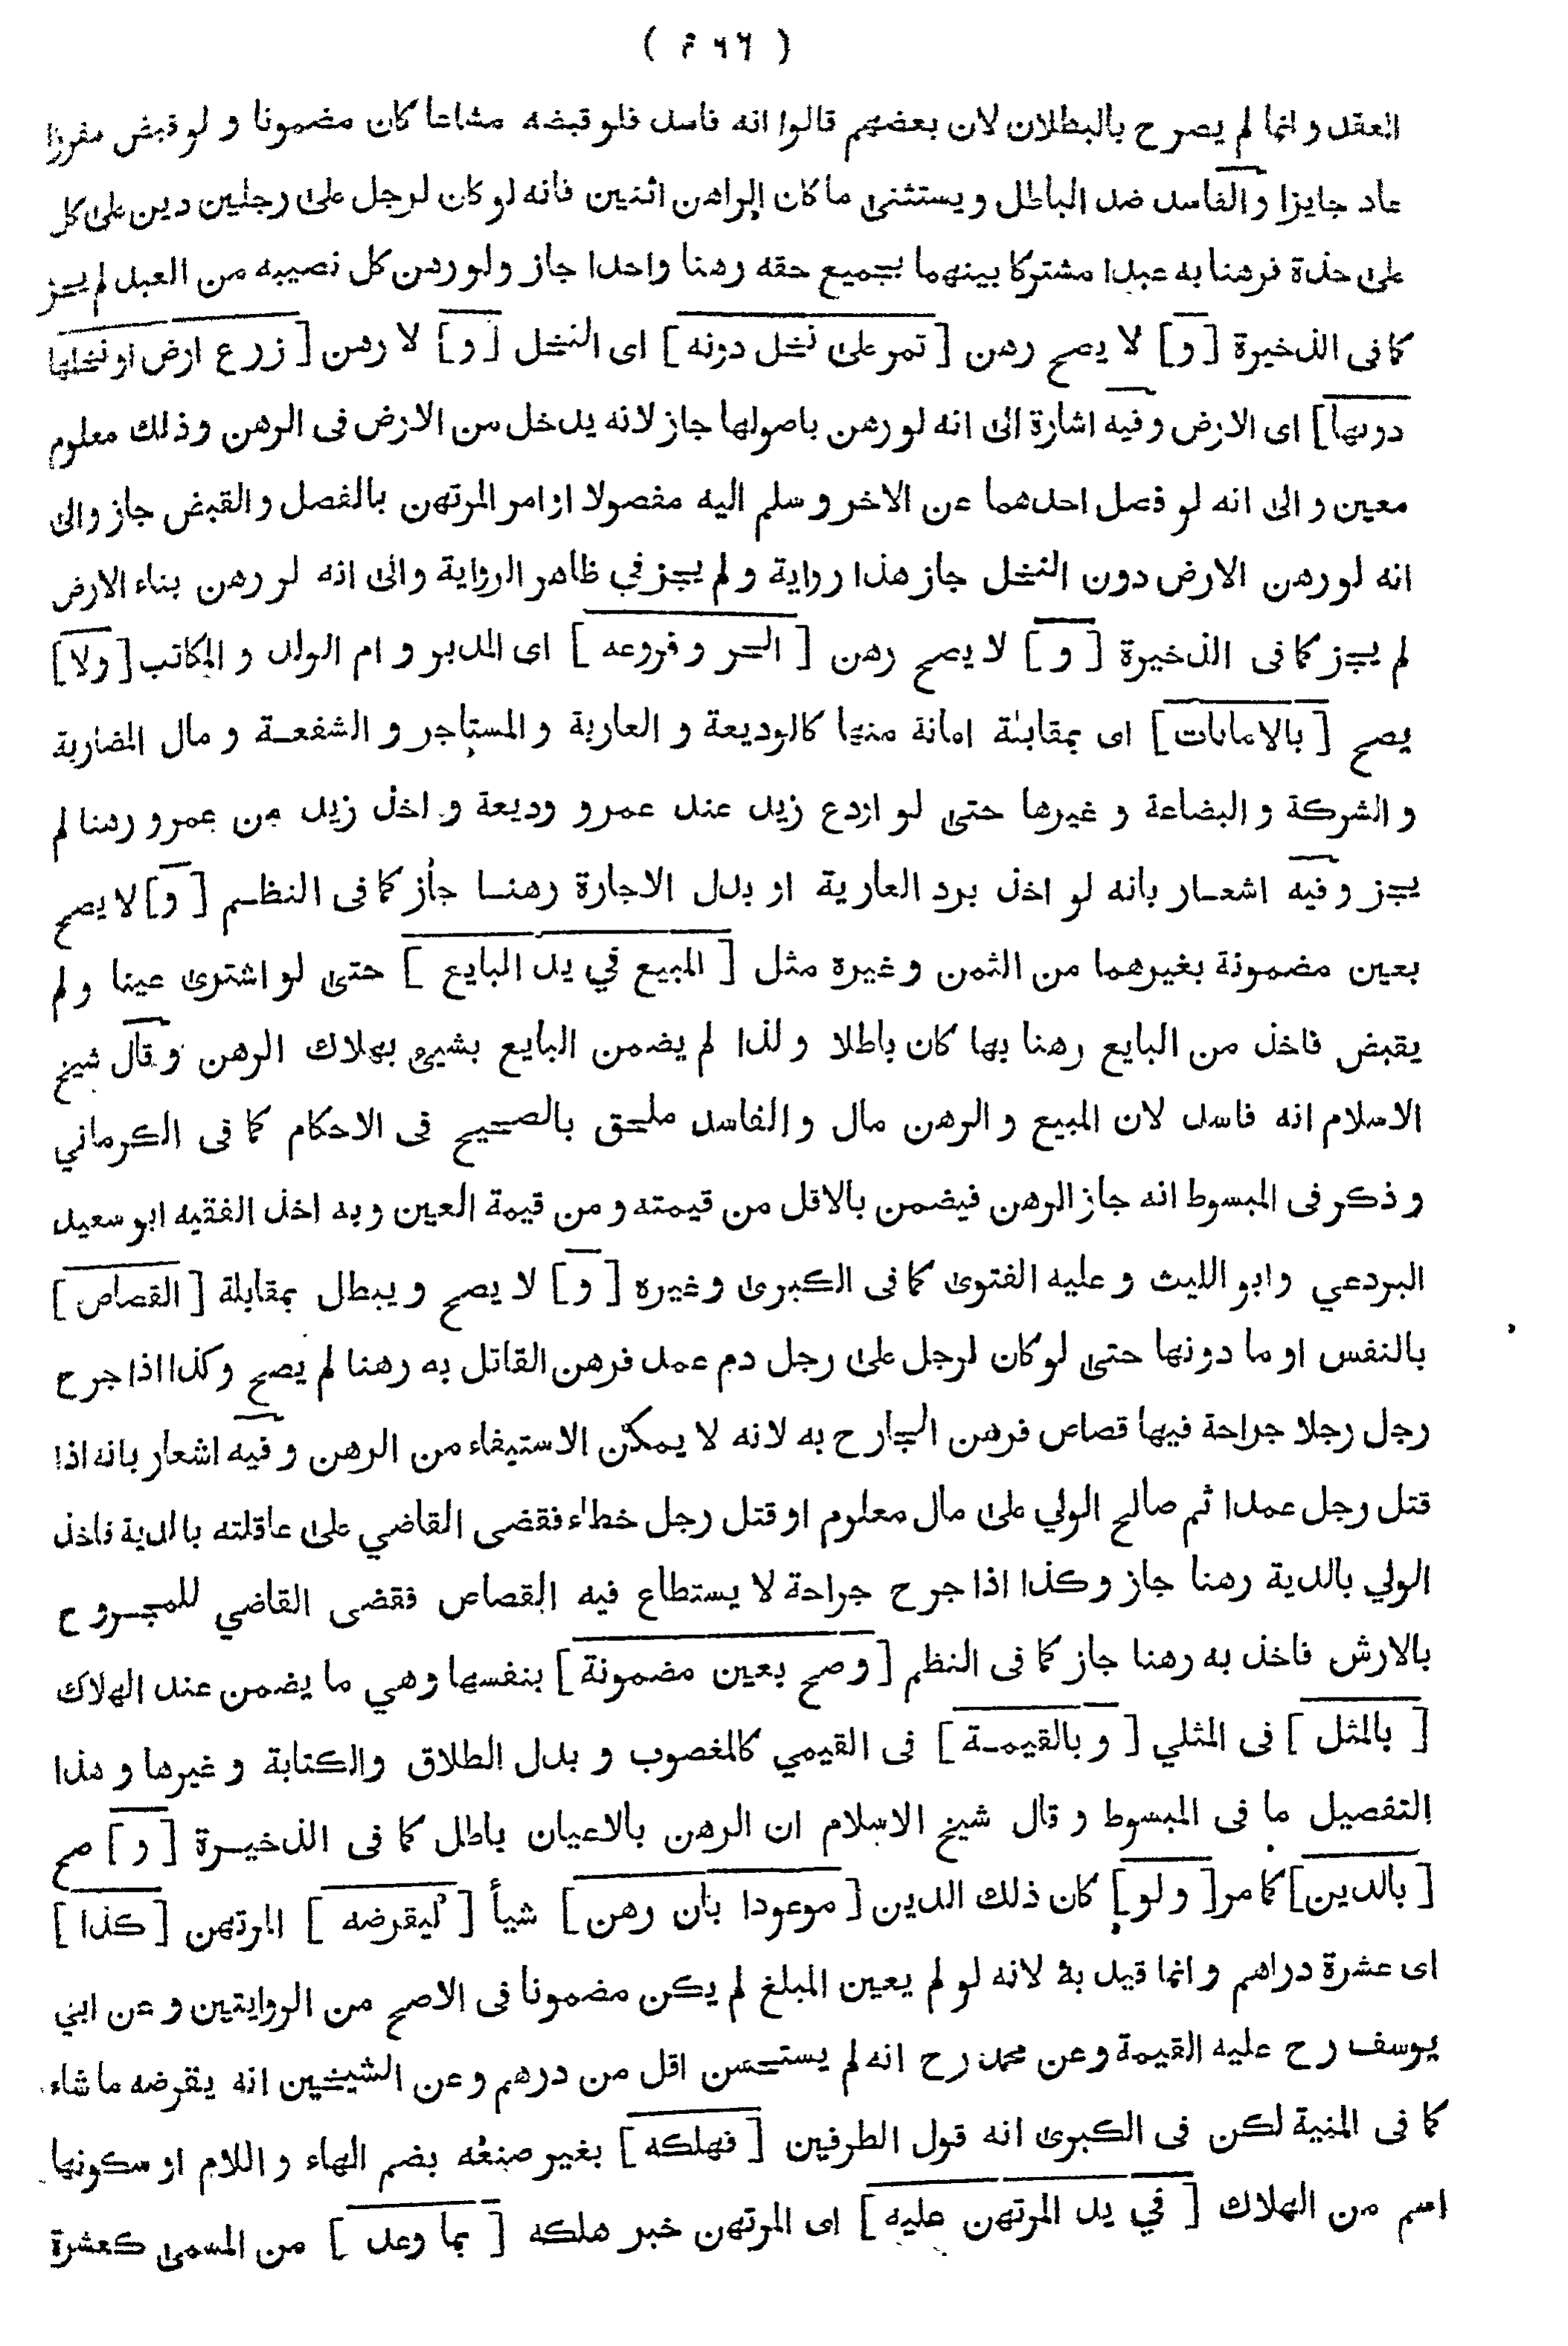 ( ٤٦٦ )
العقد وانما لم يصرح بالبطلان لان بعضهم قالوا انه فاسد فلو قبضه مشاعا كان مضمونا و لو قبض مفرزا
عاد جايزا والفاسد ضد الباطل ويستثنى ما كان الراهن اثنين فانه لو كان لرجل على رجلين دين على كل
على حدة فرهنا به عبدا مشتركا بينهما بجميع حقه رهنا واحدا جاز ولو رهن كل نصيبه من العبد لم يجز
كما فى الذخيرة [و] لا يصح رهن [تمر على نخل دونه] اى النخل [و] لا رهن [زرع ارض او نخلها
دونها] اى الارض وفيه اشارة الى انه لو رهن باصولها جاز لانه يدخل من الارض فى الرهن وذلك معلوم
معين و الى انه لو فصل احدهما عن الاخر و سلم اليه مفصولا او امر المرتهن بالفصل والقبض جاز والى
انه لو رهن الارض دون النخل جاز هذا رواية و لم يجز في ظاهر الرواية والى انه لو رهن بناء الارض
لم يجز كما فى الذخيرة [و] لا يصح رهن [الحر و فروعه] اى المدبر و ام الولد و المكاتب [ولا]
يصح [بالامانات] اى بمقابلة امانة منها كالوديعة و العارية و المستاجر و الشفعة و مال المضاربة
و الشركة و البضاعة و غيرها حتى لو اودع زيد عند عمرو وديعة و اخذ زيد من عمرو رهنا لم
يجز وفيه اشعار بانه لو اخذ برد العارية او بدل الاجارة رهنا جاز كما فى النظم [و] لا يصح
بعين مضمونة بغيرهما من الثمن وغيره مثل [المبيع في يد البايع] حتى لو اشترى عينا و لم
يقبض فاخذ من البايع رهنا بها كان باطلا و لذا لم يضمن البايع بشيئ بهلاك الرهن وقال شيخ
الاسلام انه فاسد لان المبيع و الرهن مال و الفاسد ملحق بالصحيح فى الاحكام كما فى الكرماني
و ذكر فى المبسوط انه جاز الرهن فيضمن بالاقل من قيمته و من قيمة العين وبه اخذ الفقيه ابو سعيد
البردعي وابو الليث و عليه الفتوى كما فى الكبرى وغيره [و] لا يصح و يبطل بمقابلة [القصاص]
بالنفس او ما دونها حتى لو كان لرجل على رجل دم عمد فرهن القاتل به رهنا لم يصح وكذا اذا جرح
رجل رجلا جراحة فيها قصاص فرهن الجارح به لانه لا يمكن الاستيفاء من الرهن وفيه اشعار بانه اذا
قتل رجل عمدا ثم صالح الولي على مال معلوم او قتل رجل خطاء فقضى القاضي على عاقلته بالدية فاخذ
الولي بالدية رهنا جاز وكذا اذا جرح جراحة لا يستطاع فيه القصاص فقضى القاضي للمجروح
بالارش فاخذ به رهنا جاز كما فى النظم [وصح بعين مضمونة] بنفسها وهي ما يضمن عند الهلاك
[بالمثل] فى المثلي [و بالقيمة] فى القيمي كالمغصوب و بدل الطلاق والكتابة و غيرها و هذا
التفصيل ما فى المبسوط و قال شيخ الاسلام ان الرهن بالاعيان باطل كما فى الذخيرة [و] صح
[بالدين] كما مر [و لو] كان ذلك الدين [موعودا بان رهن] شيأ [ليقرضه] المرتهن [كذا]
اى عشرة دراهم وانما قيد به لانه لو لم يعين المبلغ لم يكن مضمونا فى الاصح من الروايتين و عن ابي
يوسف رح عليه القيمة وعن محمد رح انه لم يستحسن اقل من درهم وعن الشيخين انه يقرضه ماشاء
كما فى المنية لكن فى الكبرى انه قول الطرفين [فهلكه] بغير صنعه بضم الهاء و اللام او سكونها
اسم من الهلاك [في يد المرتهن عليه] اى المرتهن خبر هلكه [بما وعد] من المسمى كعشرة